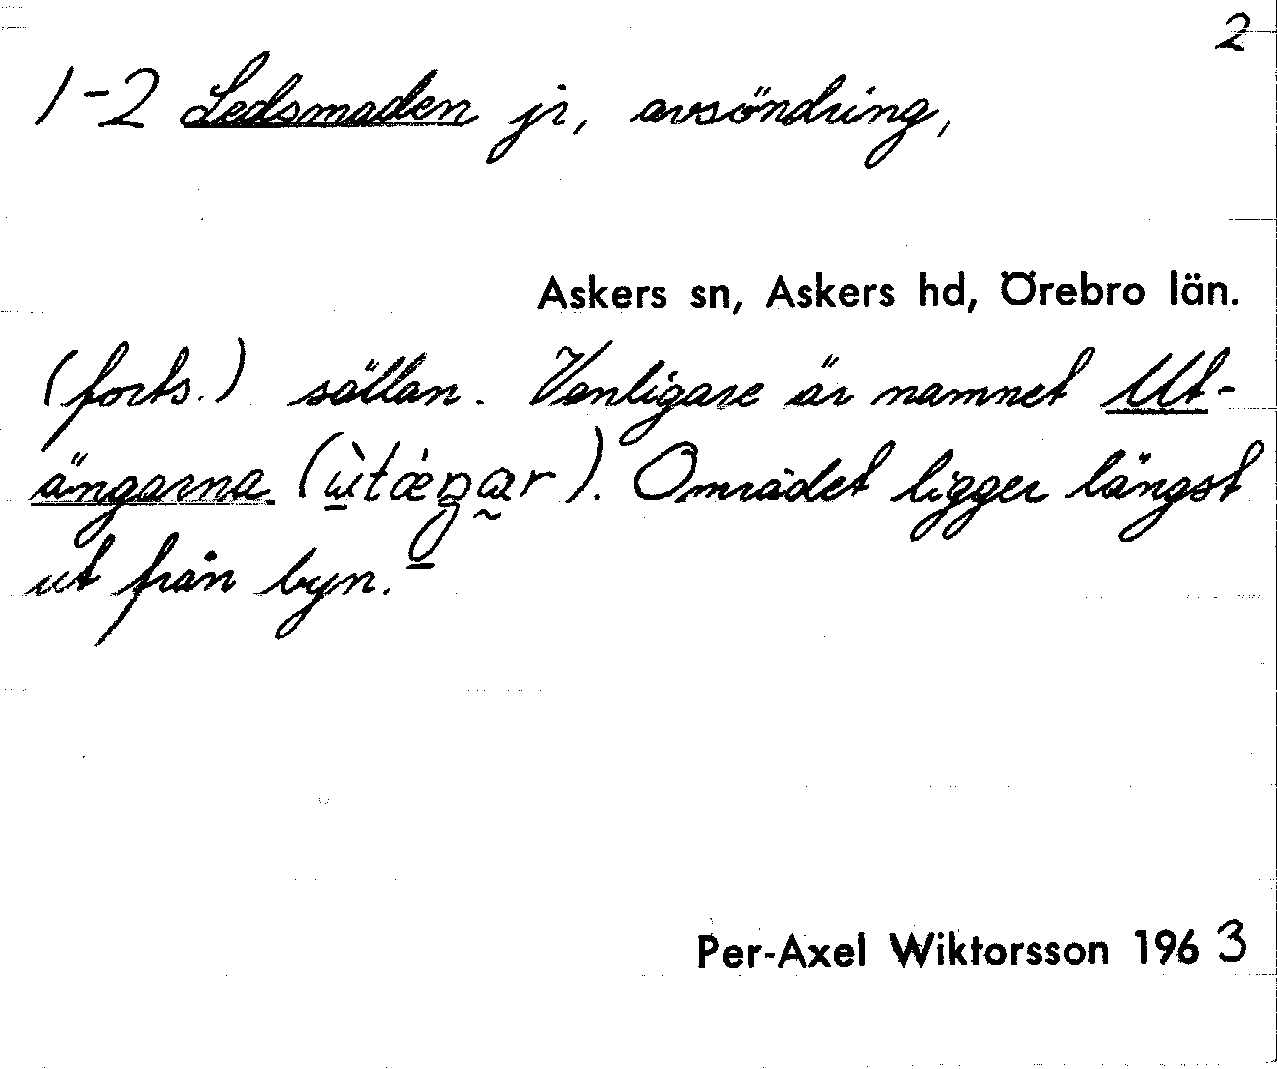 2
1-2 Ledsmaden jr, avsöndring,
Askers sn, Askers hd, Örebro län.
(forts.) sällan. Vanligare är namnet Ut-
ängarna (). Området ligger längst
ut från byn.
Per-Axel Wiktorsson 1963